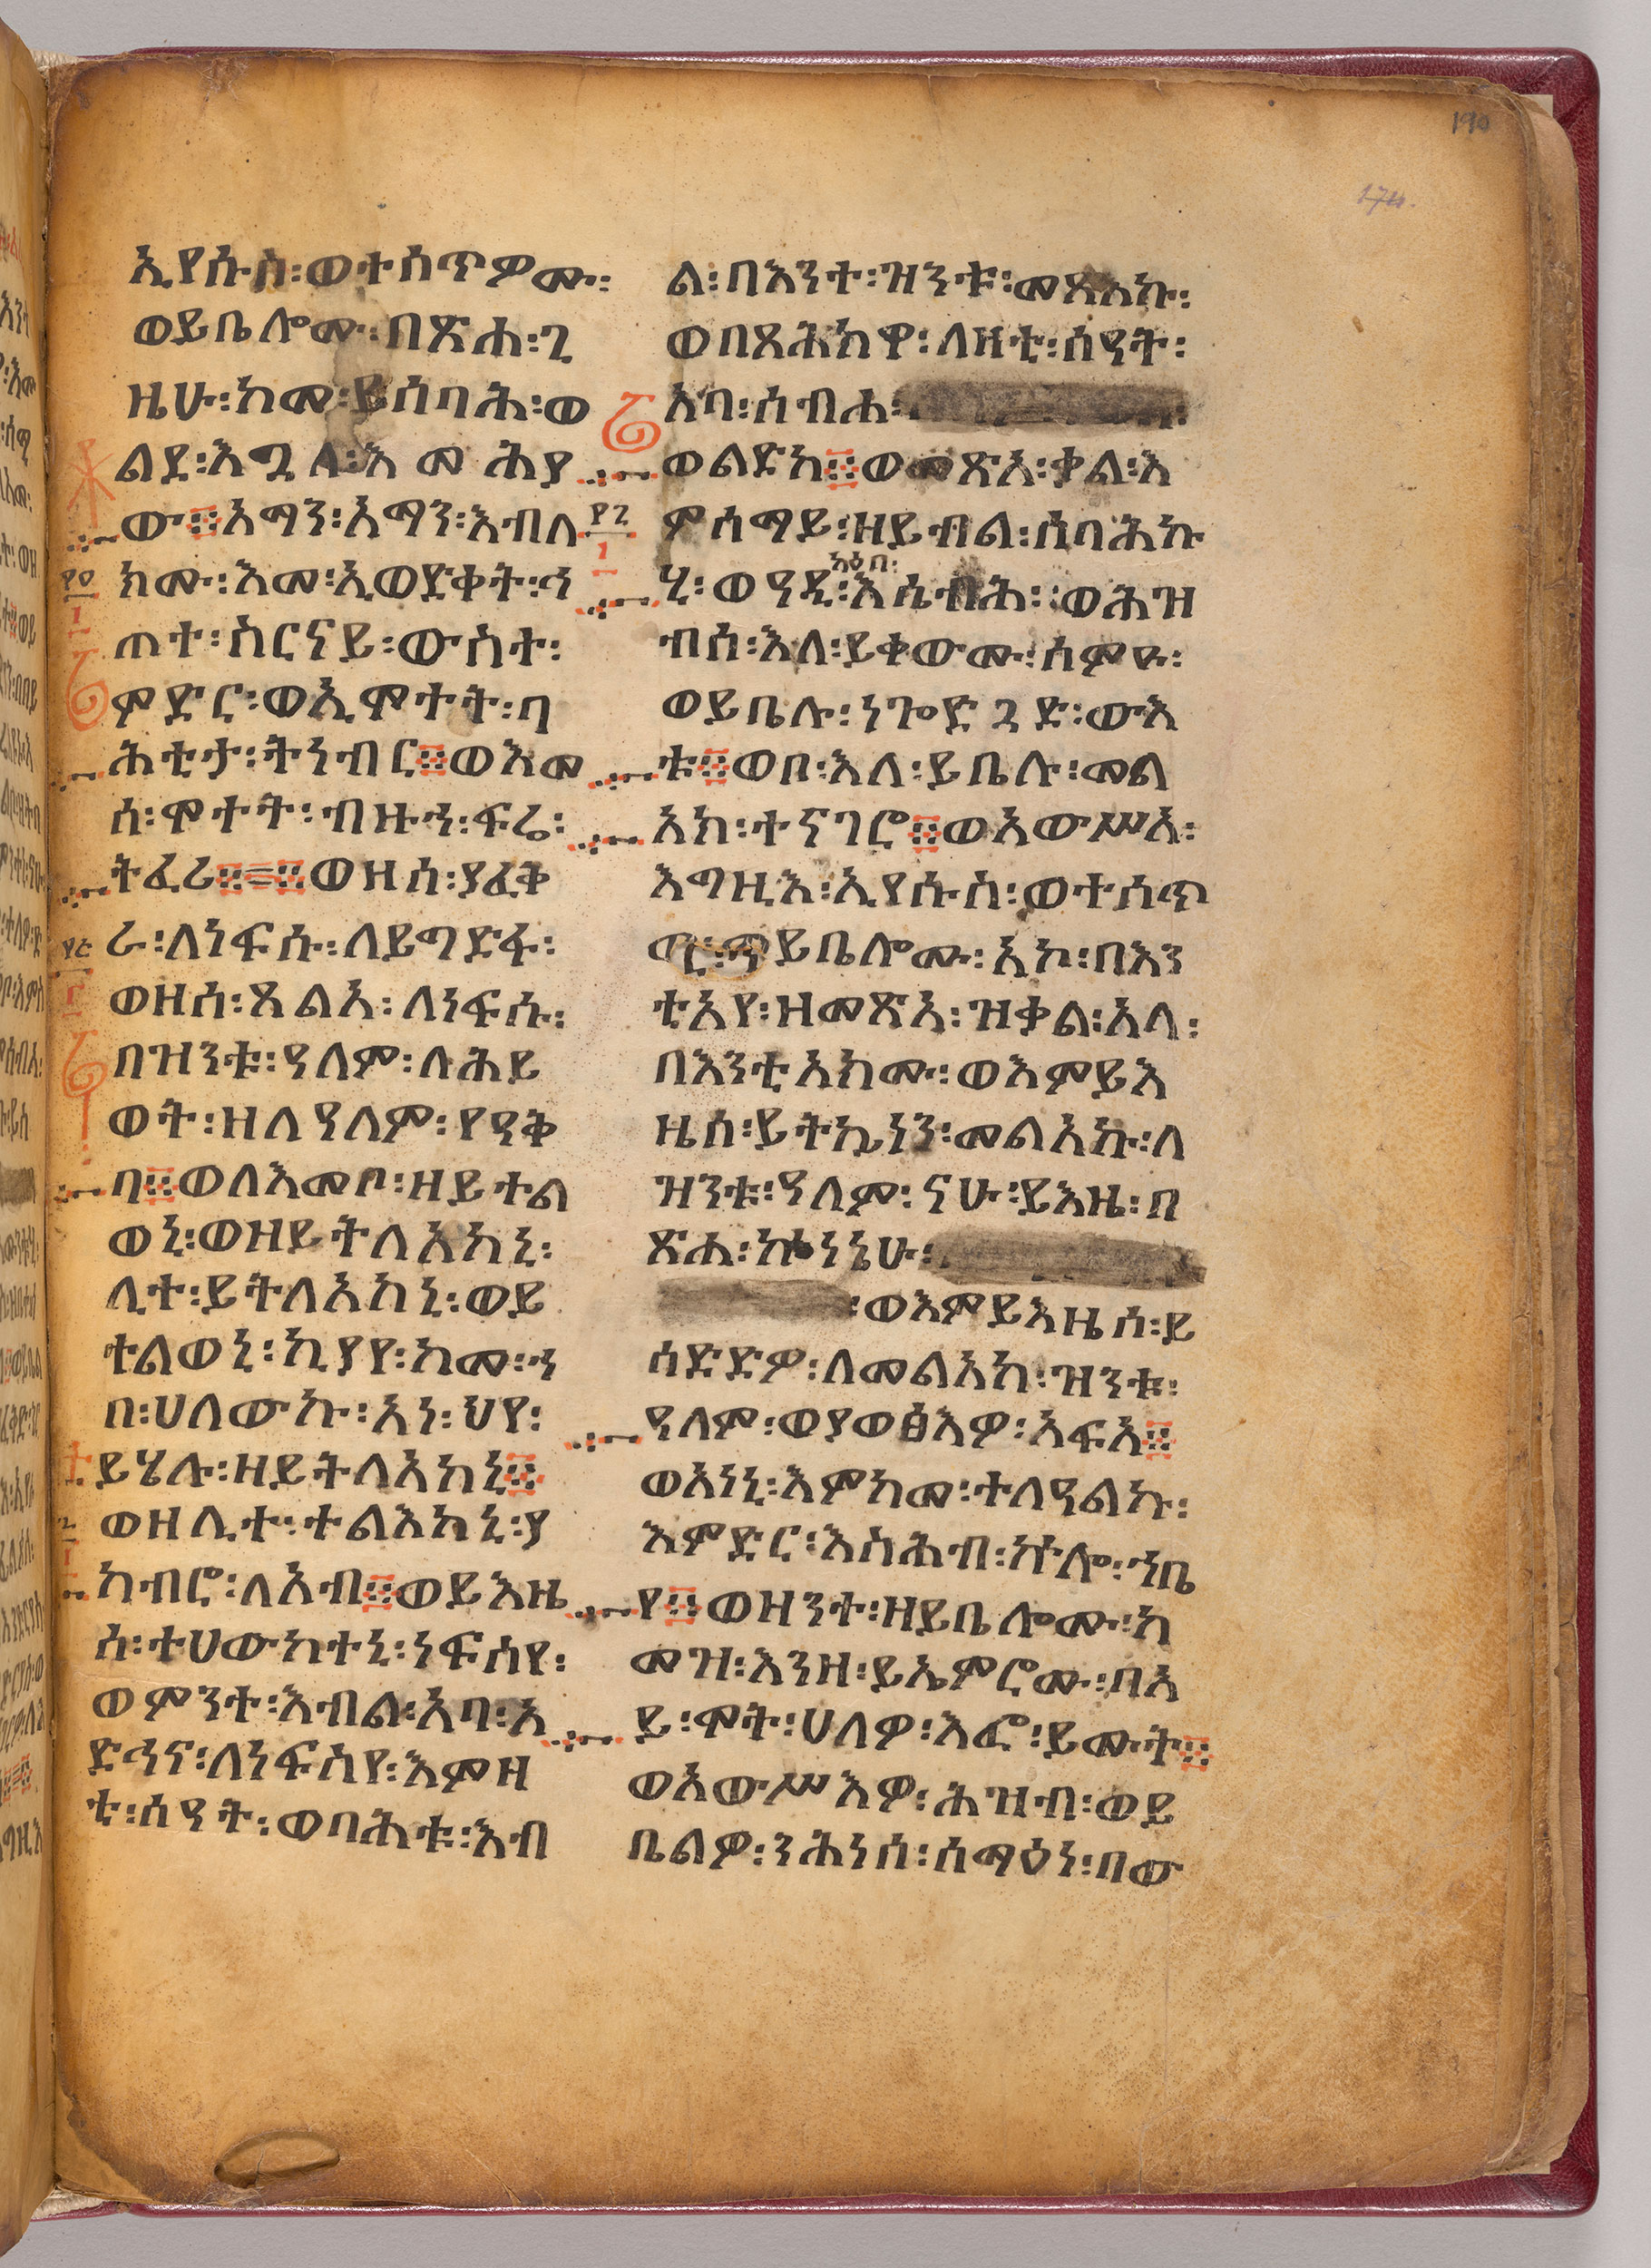 190
174.
ኢየሱስ፡ወተሰጥዎሙ፡
ወይቤሎሙ፡በጽሐ፡ጊ
ዜሁ፡ከመ፡ይሰባሕ፡ወ
ልደ፡እጓለ፡እመሕያ
ው፨አማን፡አማን፡እብለ
ክሙ፡እመ፡ኢወድቀት፡ኅ
ጠተ፡ስርናይ፡ውስተ፡
ምድር፡ወኢሞተት፡ባ
ሕቲታ፡ትነብር፨ወእመ
ሰ፡ሞተት፡ብዙኅ፡ፍሬ፡
ትፈሪ፨=፨ወዘሰ፡ያፈቅ
ራ፡ለነፍሱ፡ለይግድፋ፡
ወዘሰ፡ጸልአ፡ለነፍሱ፡
በዝንቱ፡ዓለም፡ለሕይ
ወት፡ዘለዓለም፡የዓቅ
ባ፨ወለእመቦ፡ዘይተል
ወኒ፡ወዘይትለአከኒ፡
ሊተ፡ይትለአከኒ፡ወይ
ተልወኒ፡ኪያየ፡ከመ፡ኀ
በ፡ሀለውኩ፡አነ፡ህየ፡
ይሄሉ፡ዘይትለአከኒ፨
ወዘሊተ፡ተልእከኒ፡ያ
ከብሮ፡ለአብ፨ወይእዜ
ሰ፡ተሀውከተኒ፡ነፍሰየ፡
ወምንተ፡እብል፡አባ፡አ
ድኅና፡ለነፍስየ፡እምዘ
ቲ፡ሰዓት፡ወባሕቱ፡እብ
ል፡በእንተ፡ዝንቱ፡መጻእኩ፡
ወበጻሕክዋ፡ለዛቲ፡ሰዓት፡
አባ፡ሰብሐ፡
ወልድከ፨ወመጽአ፡ቃል፡እ
ምሰማይ፡ዘይብል፡ሰባሕኩ
አዕበ፡
ሂ፡ወዓዲ፡እሴብሕ፡ወሕዝ
ብሰ፡እለ፡ይቀውሙ፡ሰምዑ፡
ወይቤሉ፡ነጐድጓድ፡ውእ
ቱ፨ወቦ፡እለ፡ይቤሉ፡መል
አክ፡ተናገሮ፨ወአውሥአ፡
እግዚእ፡ኢየሱስ፡ወተሰጥ
ይቤሎሙ፡አኮ፡በእን
ቲአየ፡ዘመጽአ፡ዝቃል፡አላ፡
በእንቲአክሙ፡ወእምይእ
ዜሰ፡ይትኴነን፡መልአኩ፡ለ
ዝንቱ፡ዓለም፡ናሁ፡ይእዜ፡በ
ጽሐ፡ኵነኔሁ፡
፡ወእምይእዜሰ፡ይ
ሰድድዎ፡ለመልአከ፡ዝንቱ፡
ዓለም፡ወያወፅእዎ፡አፍአ፨
ወአነኒ፡እምከመ፡ተለዓልኩ፡
እምድር፡እስሕብ፡ኵሎ፡ኀቤ
የ፨ወዘንተ፡ዘይቤሎሙ፡ከ
መዝ፡እንዘ፡ይኤምሮሙ፡በአ
ይ፡ሞት፡ሀለዎ፡እፎ፡ይሙት፨
ወአውሥእዎ፡ሕዝብ፡ወይ
ቤልዎ፡ንሕነሰ፡ሰማዕነ፡በው